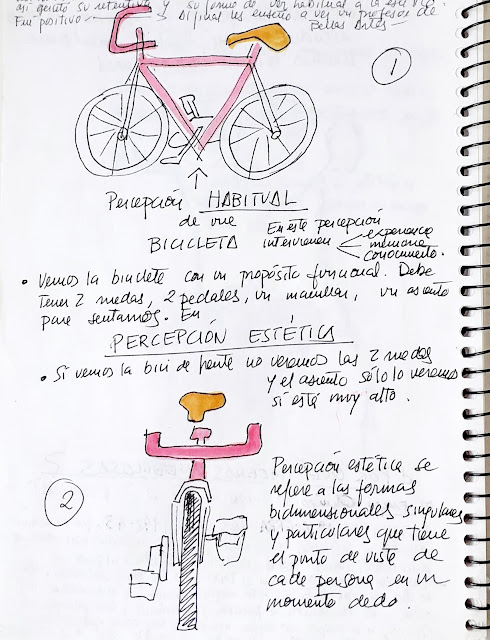 mi gente su retentiva y su forma de ver habitual a la
En positivo Dibujar les enseño a ver un profesor de
Bellas Artes-
1
Percepción HABITUAL
de una
BICICLETA
En este percepción
intervienen experiencia
memoria
conocimiento.
• Vemos la bicicleta con un propósito funcional. Debe
tener 2 ruedas, 2 pedales, un manillar, un asiento
para sentarnos. En
PERCEPCIÓN ESTÉTICA
• Si vemos la bici de frente no veremos las 2 ruedas
y el asiento sólo lo veremos
si está muy alto.
2
Percepción estética se
refiere a las formas
bidimensionales singulares
y particulares que tiene
el punto de vista de
cada persona en un
momento dado.